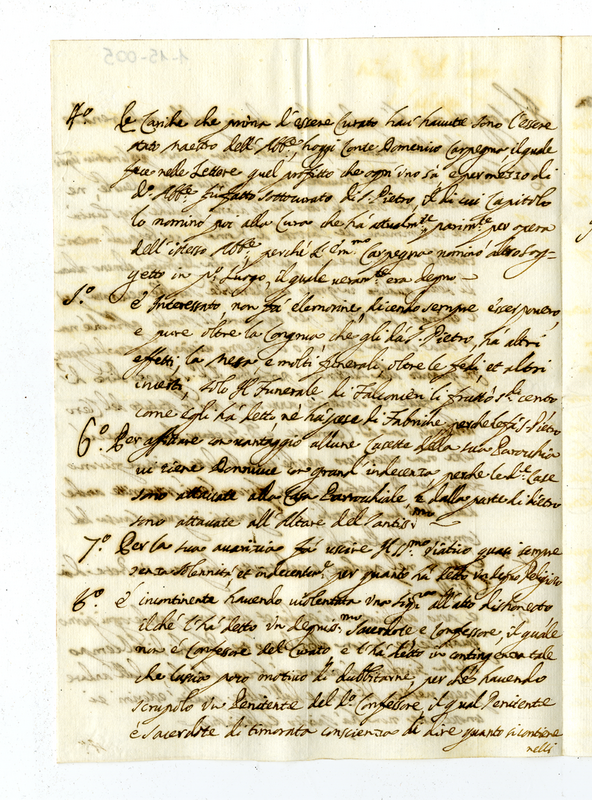 4.º Le Cariche che prima d'essere Curato hà havute sono l'essere
stato maestro dell'Abbe, hoggi Conte Domenico Carpegna il quale
fece nelle lettere quel profitto che ogni uno sà e per mezzo di
d.º Abbe fù fatto sottocurato di S. Pietro, il di cui Capitolo
lo nominò poi alla Cura che hà attualmte, parimte per opera
dell'istesso Abbe, perchè l'Emmo Carpegna nominò altro sog-
getto in pº luogo, il quale veramte era degno
5.º è Interessato, non fà elemosine, dicendo sempre esser povero,
e pure oltre la Congrua che gli dà S. Pietro, hà altri
effetti, la Messa, e molti funerali, oltre le fedi, et altri
incerti, solo il Funerale di Falconieri li fruttò sdi cento
come egli hà detto, nè hà spese di Fabriche perche le fà S. Pietro
6.º Per affittare con vantaggio alcune Casette della sua Parocchia
vi tiene Donnicciole con grand'indecenza, perche le de Case
sono attaccate alla Casa Parrocchiale, e dalla parte di dietro
sono attaccate all'Altare del Santissmo
7.º Per la sua avarizia fà uscire il SSmo Viatico quasi sempre
senza solennità et indecentemte, per quanto hà detto un degno Religioso
8.º è incontinente havendo violentata una all'atto dishonesto
il che l'hà detto un degnissmo Sacerdote e Confessore, il quale
non è Confessore del Curato e l'hà detto in contingenza tale
che lascia poco motivo di dubbitarne, per che havendo
scrupolo un Penitente del d.º Confessore, il qual Penitente
è sacerdote di timorata conscienza di dire quanto si contiene
nelli
1-15-005